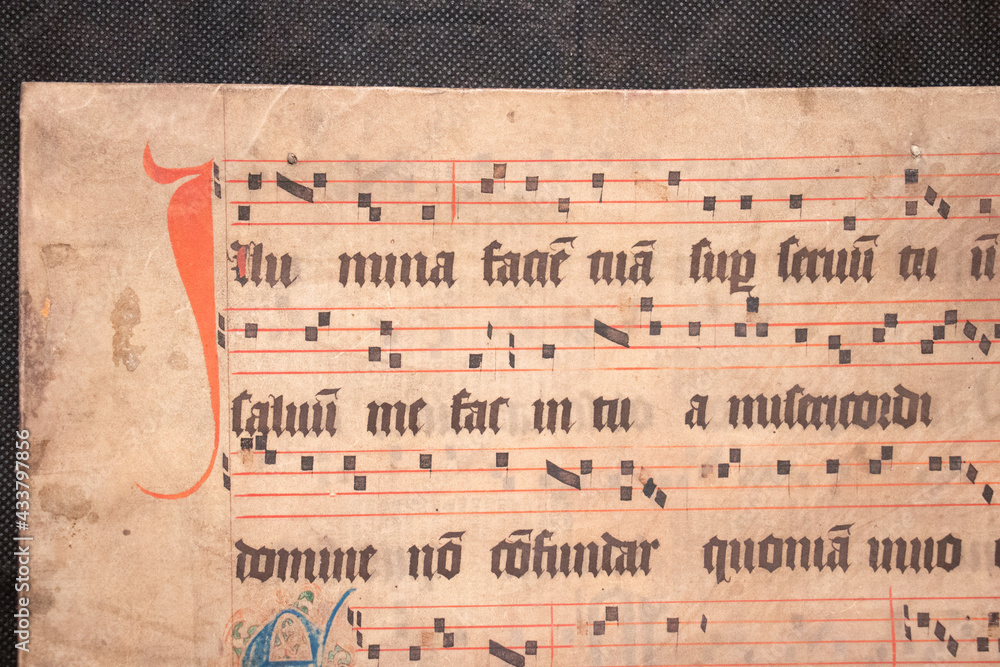 Illu mina faciē tuā suꝑ seruū tu ū
saluū me fac in tu a misericordi
domine nō cōfundar quoniā inuo
Adobe Stock | #433797856